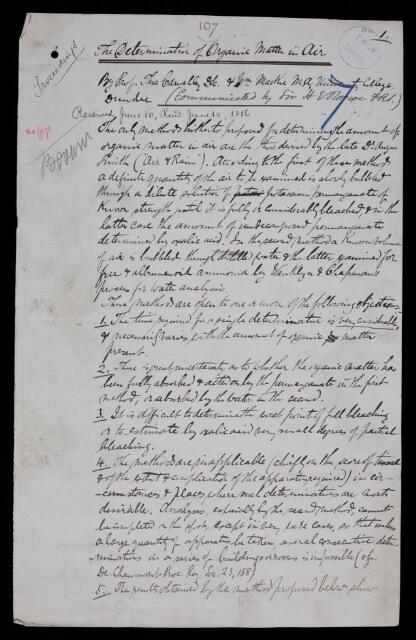 107
1.
Proceedings
The Determination of Organic Matter in Air
By Prof. Thos Carnelley D.Sc. & Wm Mackie M.A. University College,
Dundee (Communicated by Sir H E Roscoe F.R.S.)
Received June 10, Read June 10, 1886
The only methods hitherto proposed for determining the amount of
organic matter in air are the two devised by the late Dr Angus
Smith (Air & Rain). According to the first of these methods
a definite quantity of the air to be examined is slowly bubbled
through a dilute solution of potassium permanganate of
known strength until it is fully or considerably bleached, & in the
latter case the amount of undecomposed permanganate
determined by oxalic acid. In the second method a known volume
of air is bubbled through water & the latter examined for
free & albumenoid ammonia by Wanklyn & Chapman's
process for water analysis.
These methods are open to one or more of the following objections.
1. The time required for a single determination is very considerable,
& necessarily varies with the amount of organic matter
present.
2. There is great uncertainty as to whether the organic matter has
been fully absorbed & acted on by the permanganate in the first
method, or absorbed by the water in the second.
3. It is difficult to determine the exact point of full bleaching
or to estimate by oxalic acid very small degrees of partial
bleaching.
4. The methods are inapplicable (chiefly on the score of
& of the extent & complication of the apparatus required) in cir-
cumstances & places where such determinations are most
desirable. Analyses, especially by the second method, cannot
be completed on the spot, except in very rare cases, so that unless
a large quantity of apparatus be taken several consecutive deter-
minations in a series of buildings or rooms is impossible (cf.
De Chaumont Proc. Roy. Soc. 23, 188)
5. The results obtained by the method proposed below show